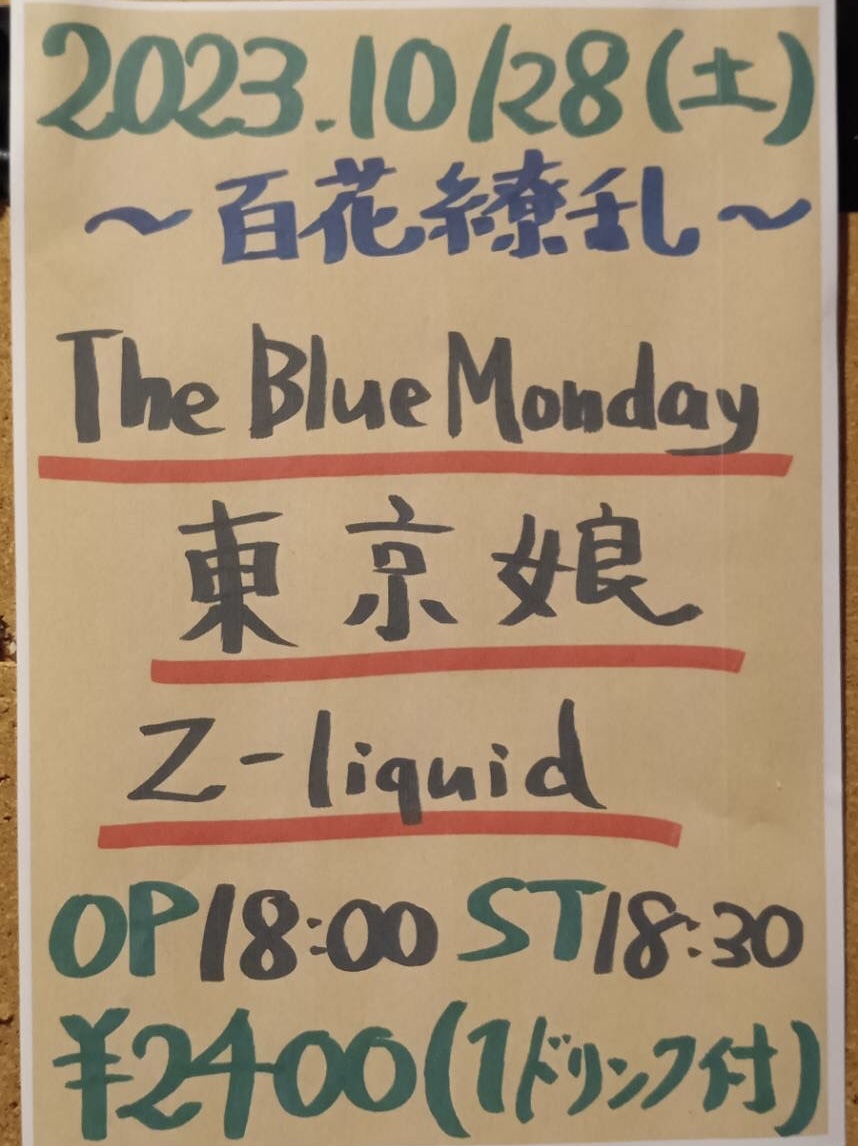 2023.10/28(土)
〜百花繚乱〜
The Blue Monday
東京娘
Z-liquid
OP18:00 ST18:30
¥2400(1ドリンク付)